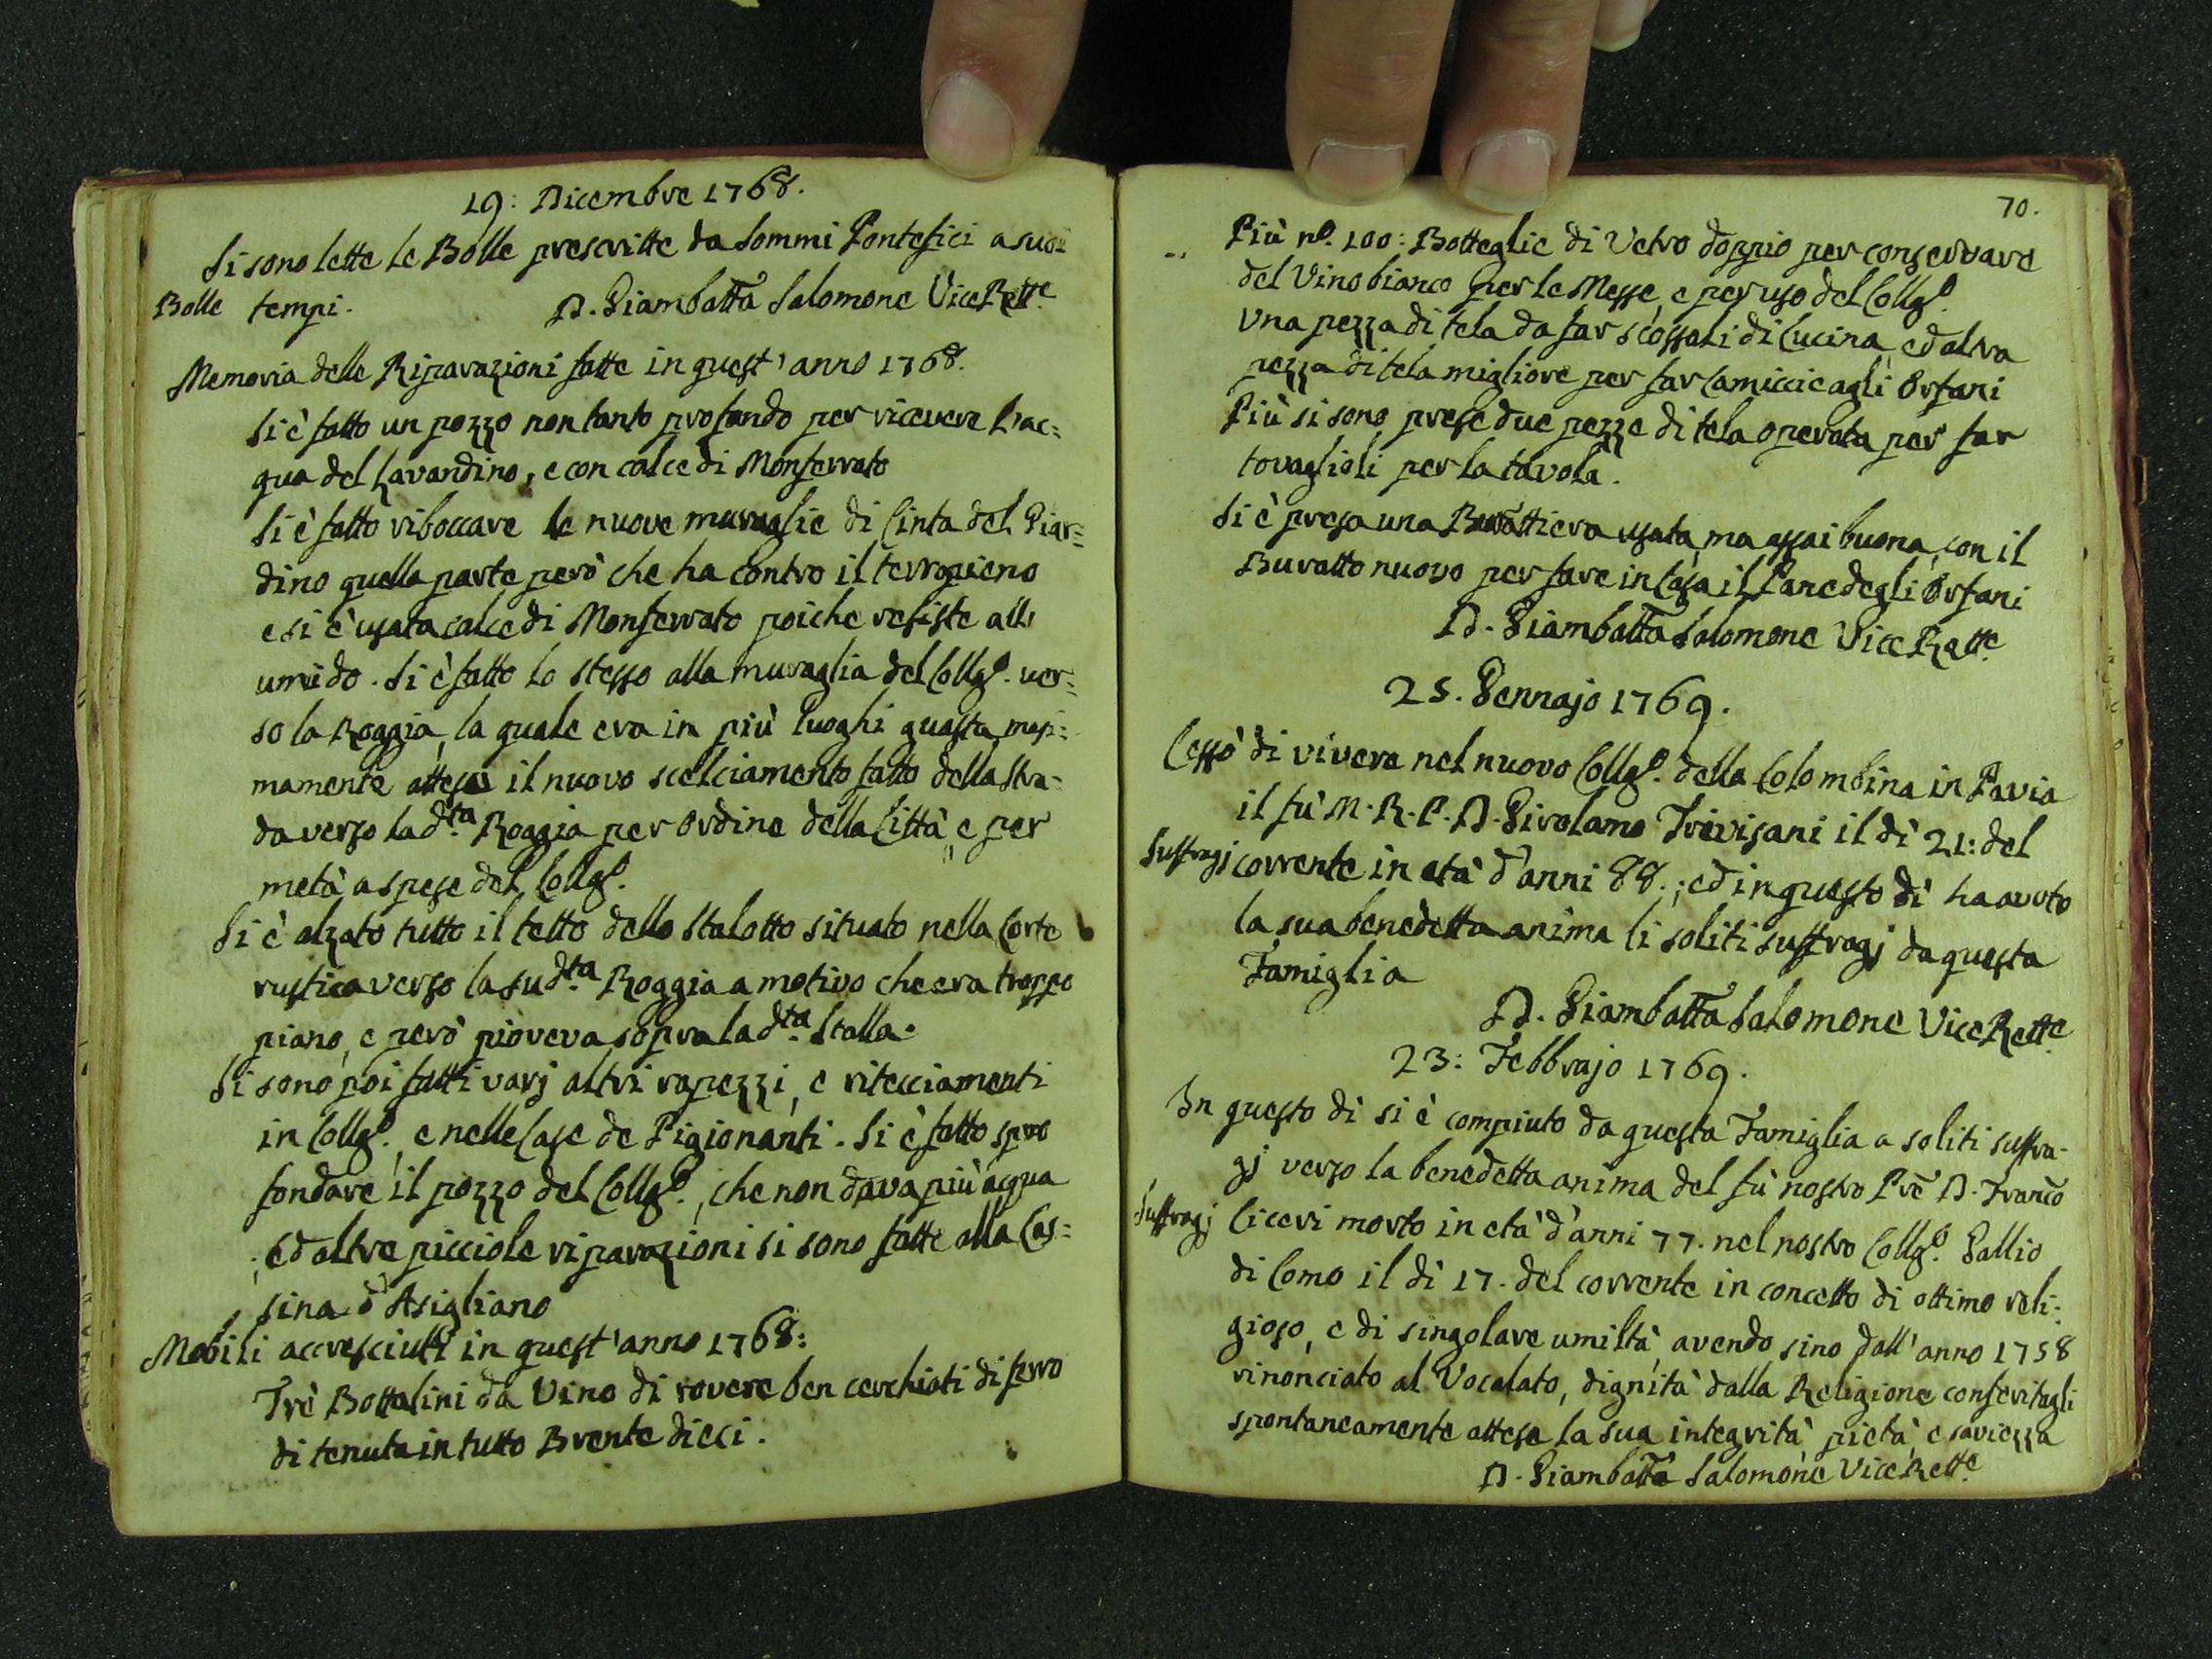 19: Dicembre 1768.
Si sono lette le Bolle prescritte da Sommi Pontefici a suoi
Bolle tempi. D. Giambatta Salomone Vice Rette
Memoria delle Riparazioni fatte in quest'anno 1768.
Si è fatto un pozzo non tanto profondo per ricevere l'ac=
qua del Lavandino, e con calce di Monferrato
Si è fatto riboccare le nuove muraglie di Cinta del Giar=
dino quella parte però che ha contro il terrapieno
e si è usata calce di Monferrato poiche resiste all'
umido. Si è fatto lo stesso alla muraglia del Collgo. ver=
so la Roggia, la quale era in più luoghi guasta, mas=
mamente atteso il nuovo scelciamento fatto della Stra=
da verso la dta Roggia per ordine della Città, e per
metà a spese del Collgo.
Si è alzato tutto il tetto dello Stalotto situato nella Corte
rustica verso la sudta Roggia a motivo che era troppo
piano, e però pioveva sopra la dta Stalla.
Si sono poi fatti varj altri rapezzi, e ritecciamenti
in Collgo., e nelle Case de Pigionanti. Si è fatto spro
fondare il pozzo del Collgo., che non dava più acqua
, ed altre picciole riparazioni si sono fatte alla Cas=
sina d'Asigliano
Mobili accresciutti in quest'anno 1768:
Trè Bottalini da Vino di rovere ben cerchiati di ferro
di tenuta in tutto Brente dieci.
70.
Più no. 100: Botteglie di Vetro doppio per conservare
del Vino bianco per le Messe, e per uso del Collgo.
Una pezza di tela da far scossali di Cucina, ed altra
pezza di tela migliore per far Camiccie agli Orfani
Più si sono prese due pezze di tela operata per far
tovaglioli per la tavola.
Si è presa una Burattiera usata, ma assai buona, con il
Buratto nuovo per fare in Casa il Pane degli Orfani
D. Giambatta Salomone Vice Rette.
25. Gennajo 1769.
Cessò di vivere nel nuovo Collgo. della Colombina in Pavia
il fù M. R. P. D. Girolamo Trevisani il dì 21: del
Suffragj corrente in età d'anni 88.; ed in questo dì ha avuto
la sua benedetta anima li soliti suffragj da questa
Famiglia
D. Giambatta Salomone Vice Rette.
23: Febbrajo 1769.
In questo dì si è compiuto da questa Famiglia a soliti suffra=
gj verso la benedetta anima del fù nostro Pre D. Franco
Suffragj Ciceri morto in età d'anni 77. nel nostro Collgo. Gallio
di Como il dì 17. del corrente in concetto di ottimo reli=
gioso, e di singolare umiltà avendo sino dall'anno 1758
rinonciato al Vocalato, dignità dalla Religione conferitagli
spontaneamente attesa la sua integrità, pietà, e saviezza
D. Giambatta Salomone Vice Rette.